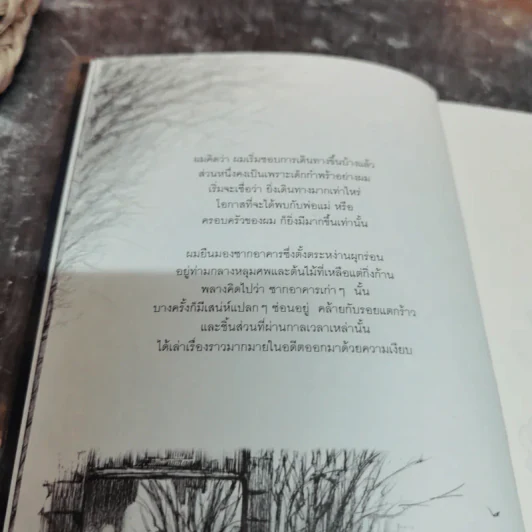 ผมคิดว่า ผมเริ่มชอบการเดินทางขึ้นบ้างแล้ว
ส่วนหนึ่งคงเป็นเพราะเด็กกำพร้าอย่างผม
เริ่มจะเชื่อว่า ยิ่งเดินทางมากเท่าไหร่
โอกาสที่จะได้พบกับพ่อแม่ หรือ
ครอบครัวของผม ก็ยิ่งมีมากขึ้นเท่านั้น
ผมยืนมองซากอาคารซึ่งตั้งตระหง่านผุกร่อน
อยู่ท่ามกลางหลุมศพและต้นไม้ที่เหลือแต่กิ่งก้าน
พลางคิดไปว่า ซากอาคารเก่าๆ นั้น
บางครั้งก็มีเสน่ห์แปลกๆ ซ่อนอยู่ คล้ายกับรอยแตกร้าว
และชิ้นส่วนที่ผ่านกาลเวลาเหล่านั้น
ได้เล่าเรื่องราวมากมายในอดีตออกมาด้วยความเงียบ